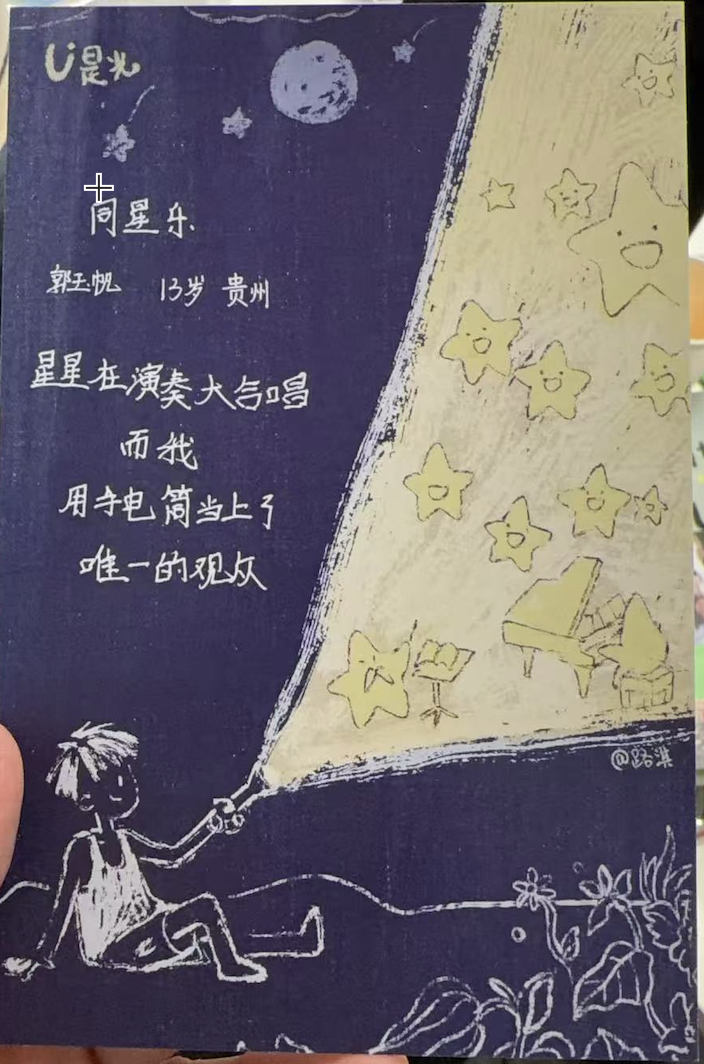 U是光
同星乐
郭玉帆 13岁 贵州
星星在演奏大合唱
而我
用手电筒当上了
唯一的观众
@路淇